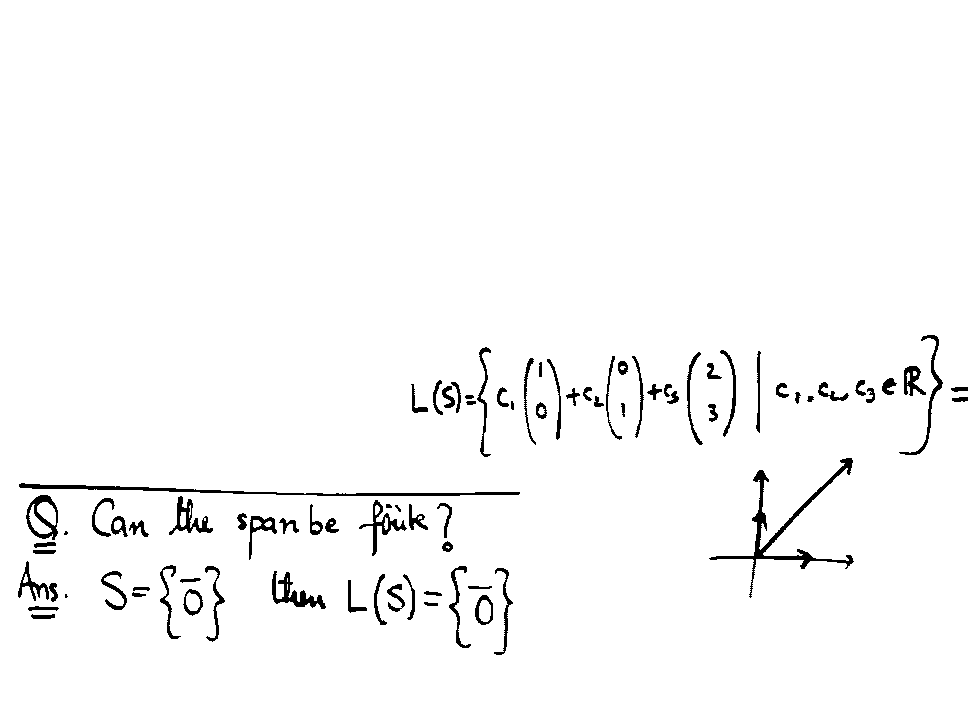 L(S)={c₁(1 0)+c₂(0 1)+c₃(2 3) | c₁, c₂, c₃ ∈ ℝ}=
Q. Can the span be finite?
Ans. S={0̅} then L(S)={0̅}